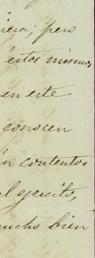 iera; pero
estos mismos
en este
conocen
n contentos
el ejercito,
mucho bien